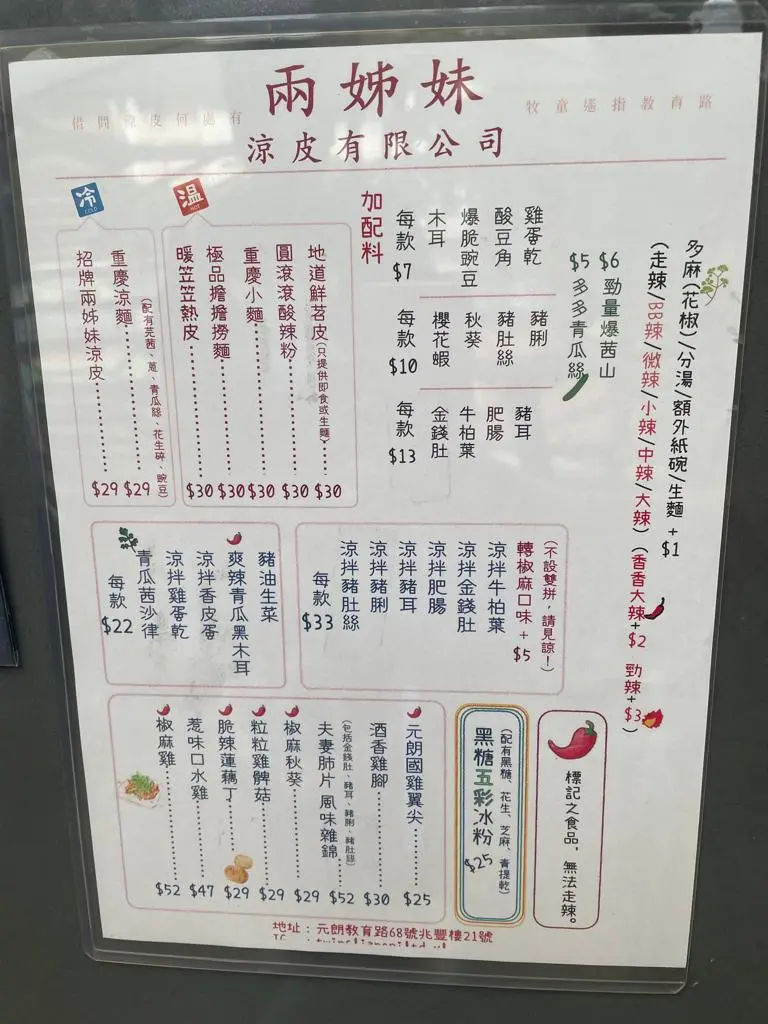 兩姊妹
借問涼皮何處有
牧童遙指教育路
涼皮有限公司
多麻(花椒)/分湯/額外紙碗/生麵+$1
(走辣/BB辣/微辣/小辣/中辣/大辣)(香香大辣+$2 勁辣+$3)
$6 勁量爆茜山
$5 多多青瓜絲
加配料
雞蛋乾
酸豆角
爆脆豌豆
木耳
每款$7
豬脷
豬肚絲
秋葵
櫻花蝦
每款$10
豬耳
肥腸
牛柏葉
金錢肚
每款$13
溫
HOT
地道鮮茗皮(只提供即食或生麵)$30
圓滾滾酸辣粉$30
重慶小麵$30
極品擔擔撈麵$30
暖笠笠熱皮$30
冷
COLD
(配有芫茜、蔥、青瓜絲、花生碎、豌豆)
重慶涼麵$29
招牌兩姊妹涼皮$29
(不設雙拼,請見諒!)
轉椒麻口味+$5
涼拌牛柏葉
涼拌金錢肚
涼拌肥腸
涼拌豬耳
涼拌豬脷
涼拌豬肚絲
每款$33
豬油生菜
爽辣青瓜黑木耳
涼拌香皮蛋
涼拌雞蛋乾
青瓜茜沙律
每款$22
標記之食品,無法走辣。
(配有黑糖、花生、芝麻、青提乾)
黑糖五彩冰粉
$25
元朗國雞翼尖$25
酒香雞腳$30
夫妻肺片風味雜錦$52
(包括金錢肚、豬耳、豬脷、豬肚絲)
椒麻秋葵$29
粒粒雞髀菇$29
脆辣蓮藕丁$29
惹味口水雞$47
椒麻雞$52
地址:元朗教育路68號兆豐樓21號